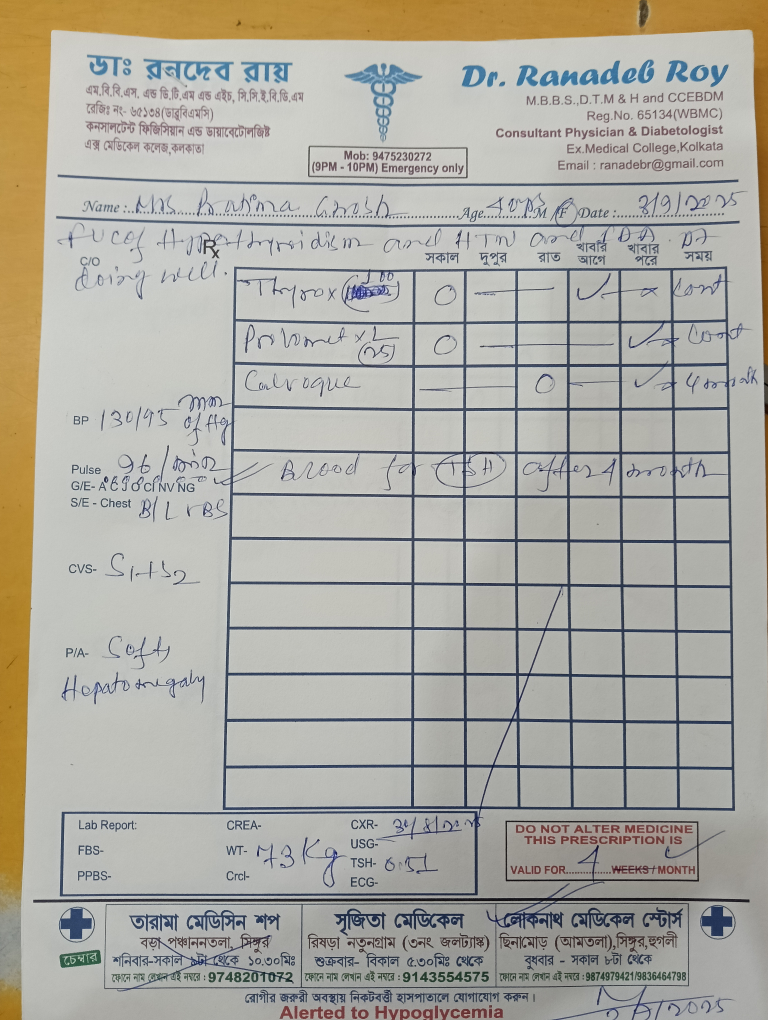 ডাঃ রনদেব রায়
এম.বি.বি.এস. এন্ড ডি.টি.এম এন্ড এইচ, সি.সি.ই.বি.ডি.এম
রেজিঃ নং- ৬৫১৩৪(ডাব্লুবিএমসি)
কনসালটেন্ট ফিজিসিয়ান এন্ড ডায়াবেটোলজিষ্ট
এক্স মেডিকেল কলেজ,কলকাতা
Mob: 9475230272
(9PM - 10PM) Emergency only
Dr. Ranadeb Roy
M.B.B.S.,D.T.M & H and CCEBDM
Reg.No. 65134(WBMC)
Consultant Physician & Diabetologist
Ex.Medical College,Kolkata
Email : ranadebr@gmail.com
Name : Mrs Pratima Ghosh Age 40 yrs M/F Date : 3/9/2025
FUC of Hypothyroidism and HTN and
C/O doing well.
Rx
সকাল দুপুর রাত খাবার আগে খাবার পরে সময়
Thyrox (100) O — ✓ → cont
O — ✓ → cont
O — ✓ → 4 month
BP 130/95 mm of Hg
Pulse 96 /min
G/E- A C J O Cl NV NG
Blood for TSH after 4 month
S/E - Chest B/L VBS
CVS- S1+S2
P/A- Soft,
Hepatomegaly
Lab Report:
FBS-
PPBS-
CREA-
WT- 73 Kg
Crcl-
CXR- 30/8/2025
USG-
TSH- 0.51
ECG-
DO NOT ALTER MEDICINE
THIS PRESCRIPTION IS
VALID FOR 4 WEEKS / MONTH
চেম্বার
তারামা মেডিসিন শপ
বড়া পঞ্চাননতলা, সিঙ্গুর
শনিবার-সকাল ৯টা থেকে ১০.৩০মিঃ
ফোনে নাম লেখান এই নম্বরে : 9748201072
সৃজিতা মেডিকেল
রিষড়া নতুনগ্রাম (৩নং জলট্যাঙ্ক)
শুক্রবার- বিকাল ৫.৩০মিঃ থেকে
ফোনে নাম লেখান এই নম্বরে : 9143554575
লোকনাথ মেডিকেল স্টোর্স
ছিনামোড় (আমতলা),সিঙ্গুর,হুগলী
বুধবার - সকাল ৮টা থেকে
ফোনে নাম লেখান এই নম্বরে : 9874979421/9836464798
রোগীর জরুরী অবস্থায় নিকটবর্তী হাসপাতালে যোগাযোগ করুন।
Alerted to Hypoglycemia